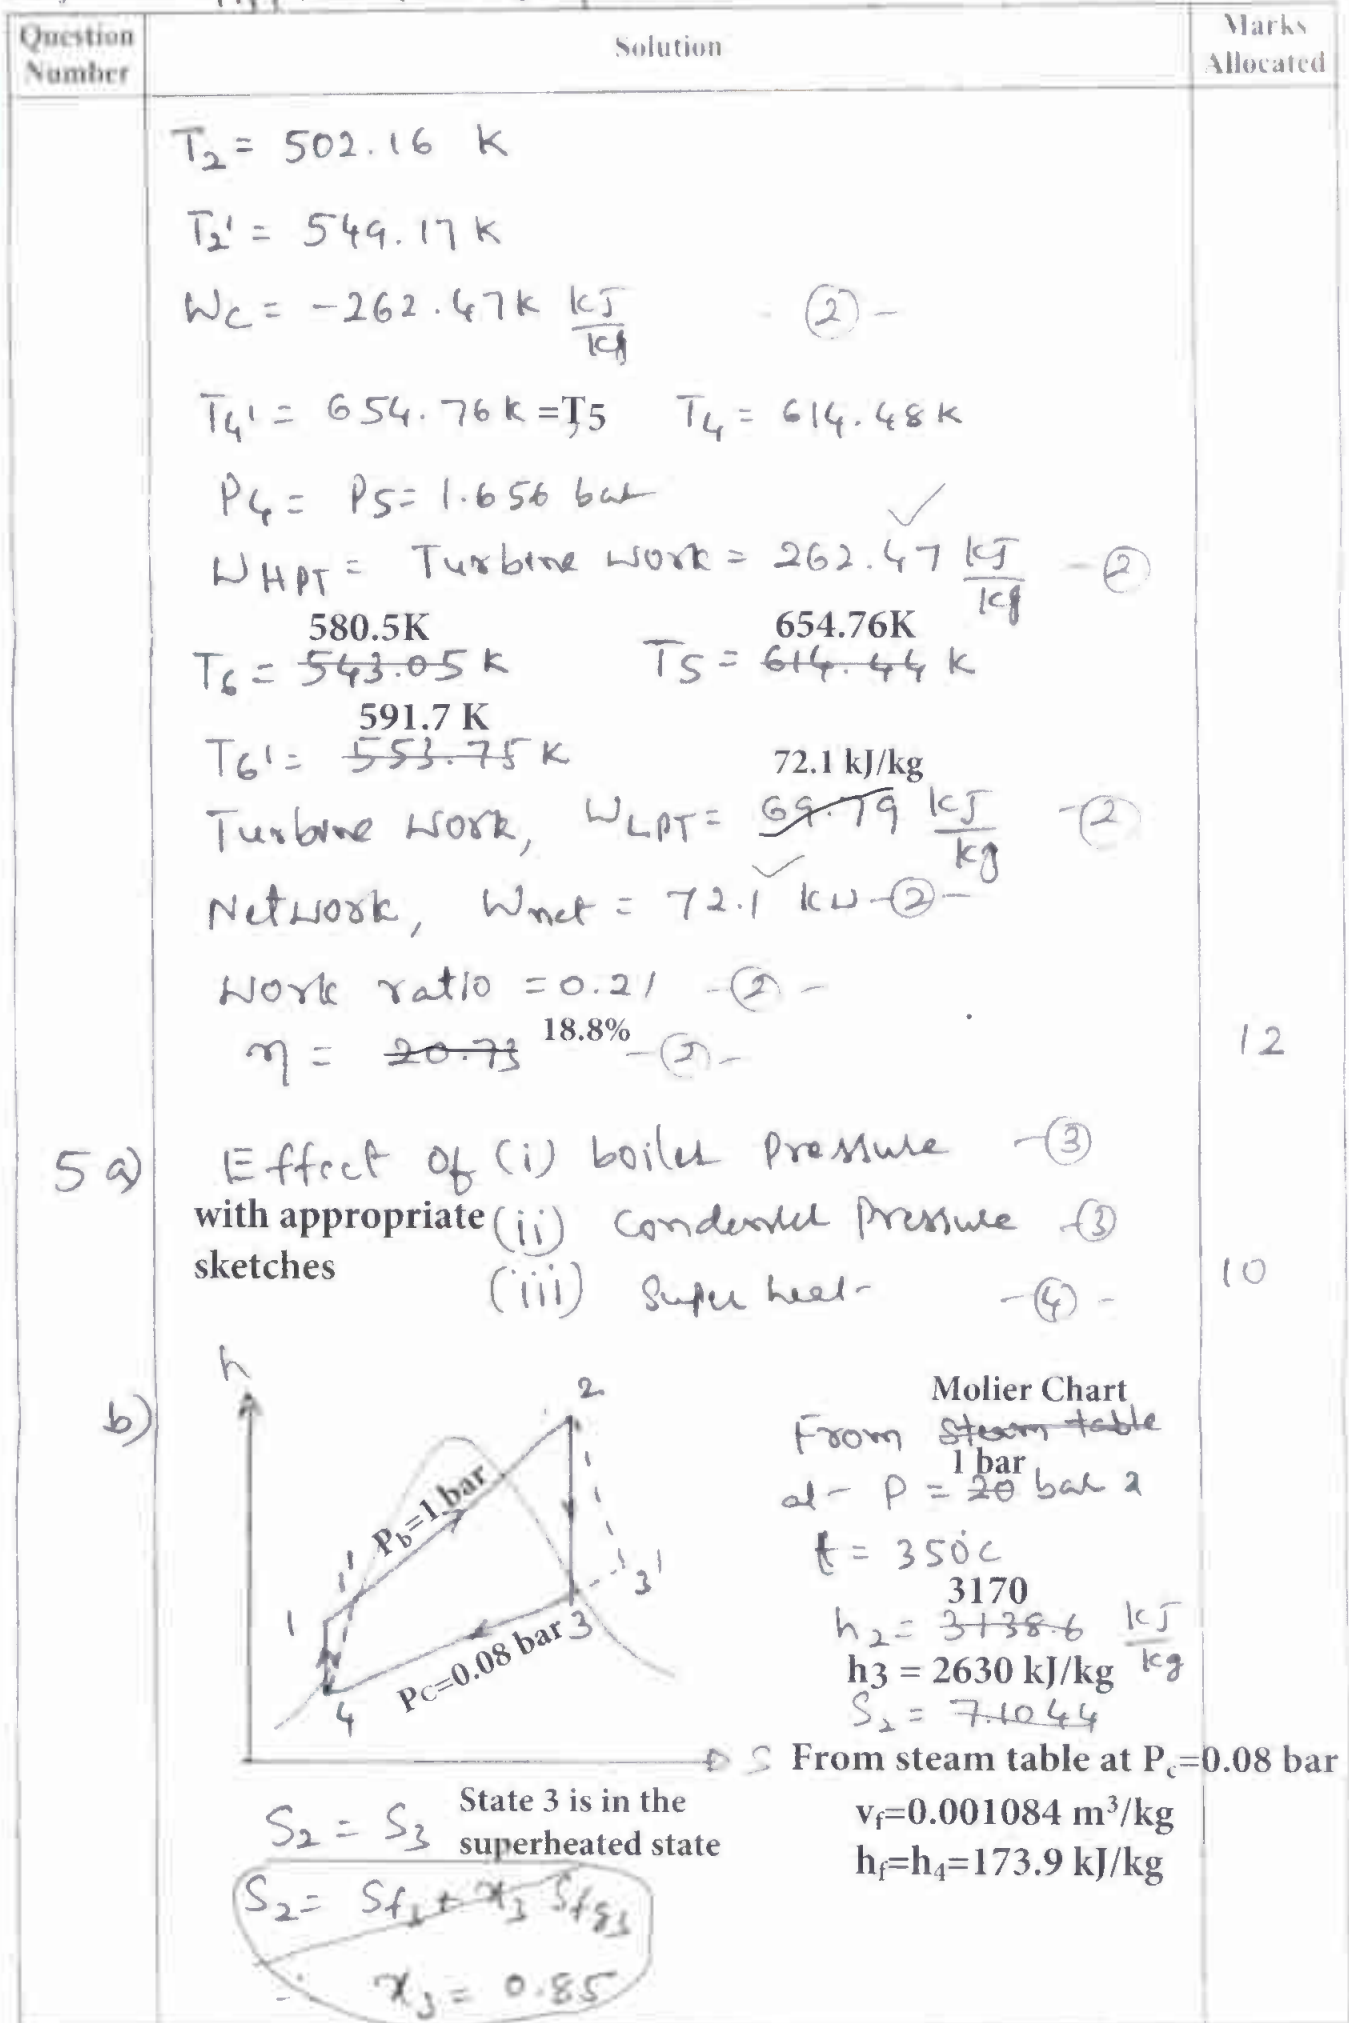 Question Number
Solution
Marks Allocated
T₂ = 502.16 K
T₂' = 549.17 K
Wc = -262.47k kJ/kg -②-
T₄' = 654.76 k =T5 T₄ = 614.48 K
P₄ = P5 = 1.656 bar
W HPT = Turbine work = 262.47 kJ/kg -②
580.5K 654.76K
T₆ = 543.05 K T5 = 614.44 K
591.7 K
T₆' = 553.75 K
72.1 kJ/kg
Turbine work, W LPT = 69.79 kJ/kg -②
Network, Wnet = 72.1 kW -②-
Work ratio = 0.21 -②-
18.8%
η = 20.73 -②- 12
5 a) Effect of (i) boiler pressure -③
with appropriate (ii) Condenser Pressure -③
sketches
(iii) Super heat -④- 10
b)
h
2
Pb=1 bar
1'
1
3'
3
Pc=0.08 bar
4
S
Molier Chart
From Steam table
1 bar
at P = 20 bar &
t = 350°c
3170
h₂ = 3138.6 kJ/kg
h3 = 2630 kJ/kg
S₂ = 7.1044
From steam table at Pc=0.08 bar
vf=0.001084 m³/kg
hf=h4=173.9 kJ/kg
S₂ = S₃ State 3 is in the
superheated state
S₂ = Sf₃ + x₃ Sfg₃
∴ x₃ = 0.85